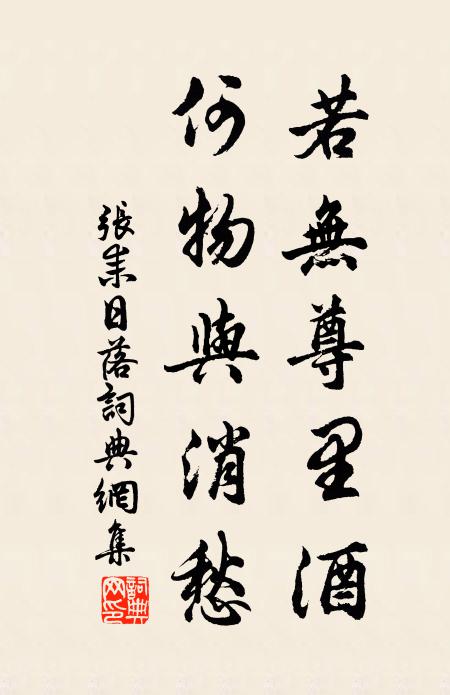 若無尊里酒
何物與消愁
張耒日落詞典網集
詞典網印